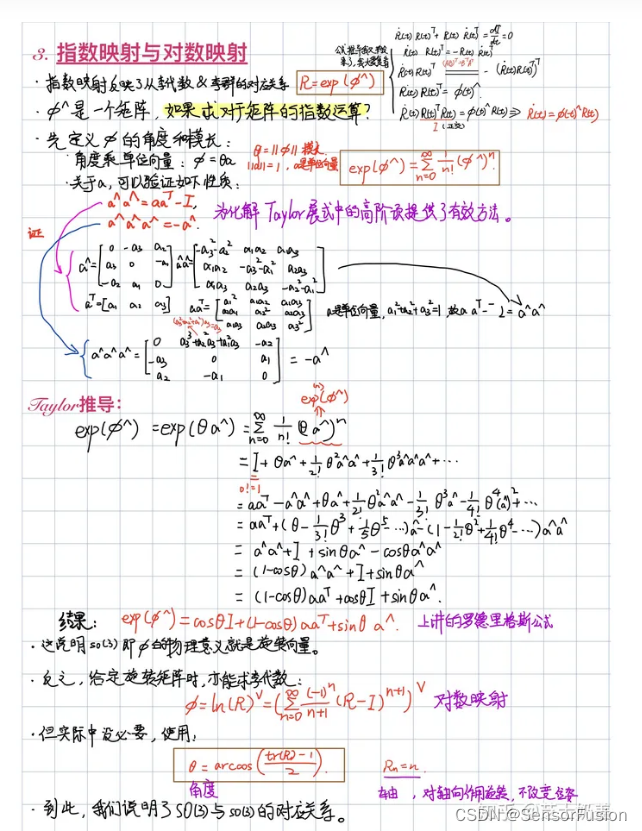 3. 指数映射与对数映射
Ṙ(t) R(t)ᵀ + R(t) Ṙ(t)ᵀ = = 0
Ṙ(t) R(t)ᵀ = -R(t) Ṙ(t)ᵀ
Ṙ(t)R(t)ᵀ = -(Ṙ(t)R(t)ᵀ)ᵀ
Ṙ(t)R(t)ᵀ = ϕ(t)^
Ṙ(t)R(t)ᵀR(t) = ϕ(t)^R(t) ⇒ Ṙ(t) = ϕ(t)^R(t)
I
·指数映射反映了从李代数&李群的对应关系 R=exp(ϕ^)
·ϕ^是一个矩阵,如果求对于矩阵的指数运算?
·先定义ϕ的角度和模长:
角度乘单位向量:ϕ=θa
θ=||ϕ|| 模长
||a||=1,a是单位向量
exp(ϕ^)=∑_{n=0}^{∞} 1/n! (ϕ^)ⁿ.
·关于a,可以验证如下性质:
a^a^=aaᵀ-I,
a^a^a^=-a^.
为化解Taylor展式中的高阶项提供了有效方法。
证
a^=[0 -a₃ a₂; a₃ 0 -a₁; -a₂ a₁ 0] a^a^=[-a₃²-a₂² a₁a₂ a₁a₃; a₁a₂ -a₃²-a₁² a₂a₃; a₁a₃ a₂a₃ -a₂²-a₁²]
aᵀ=[a₁ a₂ a₃] aaᵀ=[a₁² a₁a₂ a₁a₃; a₁a₂ a₂² a₂a₃; a₁a₃ a₂a₃ a₃²] a是单位向量,a₁²+a₂²+a₃²=1,故aaᵀ-I=a^a^
a^a^a^=[0 a₃³+a₂²a₃+a₁²a₃ -a₂; -a₃ 0 a₁; a₂ -a₁ 0] = -a^
Taylor推导:
exp(ϕ^)
exp(ϕ^) =exp(θa^) =∑_{n=0}^{∞} 1/n! (θa^)ⁿ
=I+θa^+1/2! θ²a^a^+1/3! θ³a^a^a^+···
0!=1
=aaᵀ-a^a^+θa^+1/2! θ²a^a^-1/3! θ³a^-1/4! θ⁴(a^)²+···
=aaᵀ+(θ-1/3! θ³+1/5! θ⁵-···)a^-(1-1/2! θ²+1/4! θ⁴-···)a^a^
=a^a^+I+sinθa^-cosθa^a^
=(1-cosθ)a^a^+I+sinθa^
=(1-cosθ)aaᵀ+cosθI+sinθa^.
结果: exp(ϕ^)=cosθI+(1-cosθ)aaᵀ+sinθ a^. 上讲的罗德里格斯公式
·这说明so(3)即ϕ的物理意义就是旋转向量。
·反之,给定旋转矩阵时,亦能求李代数:
ϕ=ln(R)^∨=(∑_{n=0}^{∞} (-1)ⁿ/(n+1) (R-I)ⁿ⁺¹)^∨ 对数映射
·但实际中没必要,使用:
θ=arccos((tr(R)-1)/2). Rn=n.
角度
·到此,我们说明了SO(3)与so(3)的对应关系。
CSDN @SensorFusion